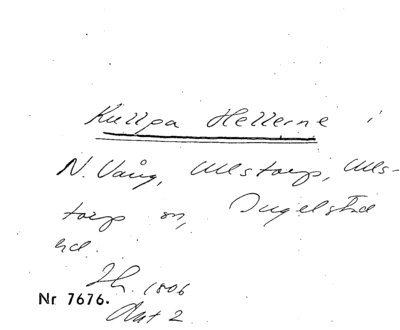 Kullpa Hellerne i
N. Vång, Ullstorp, Ulls-
torp sn, Ingelstad
hd.
Lh. 1806
Akt 2
Nr 7676.